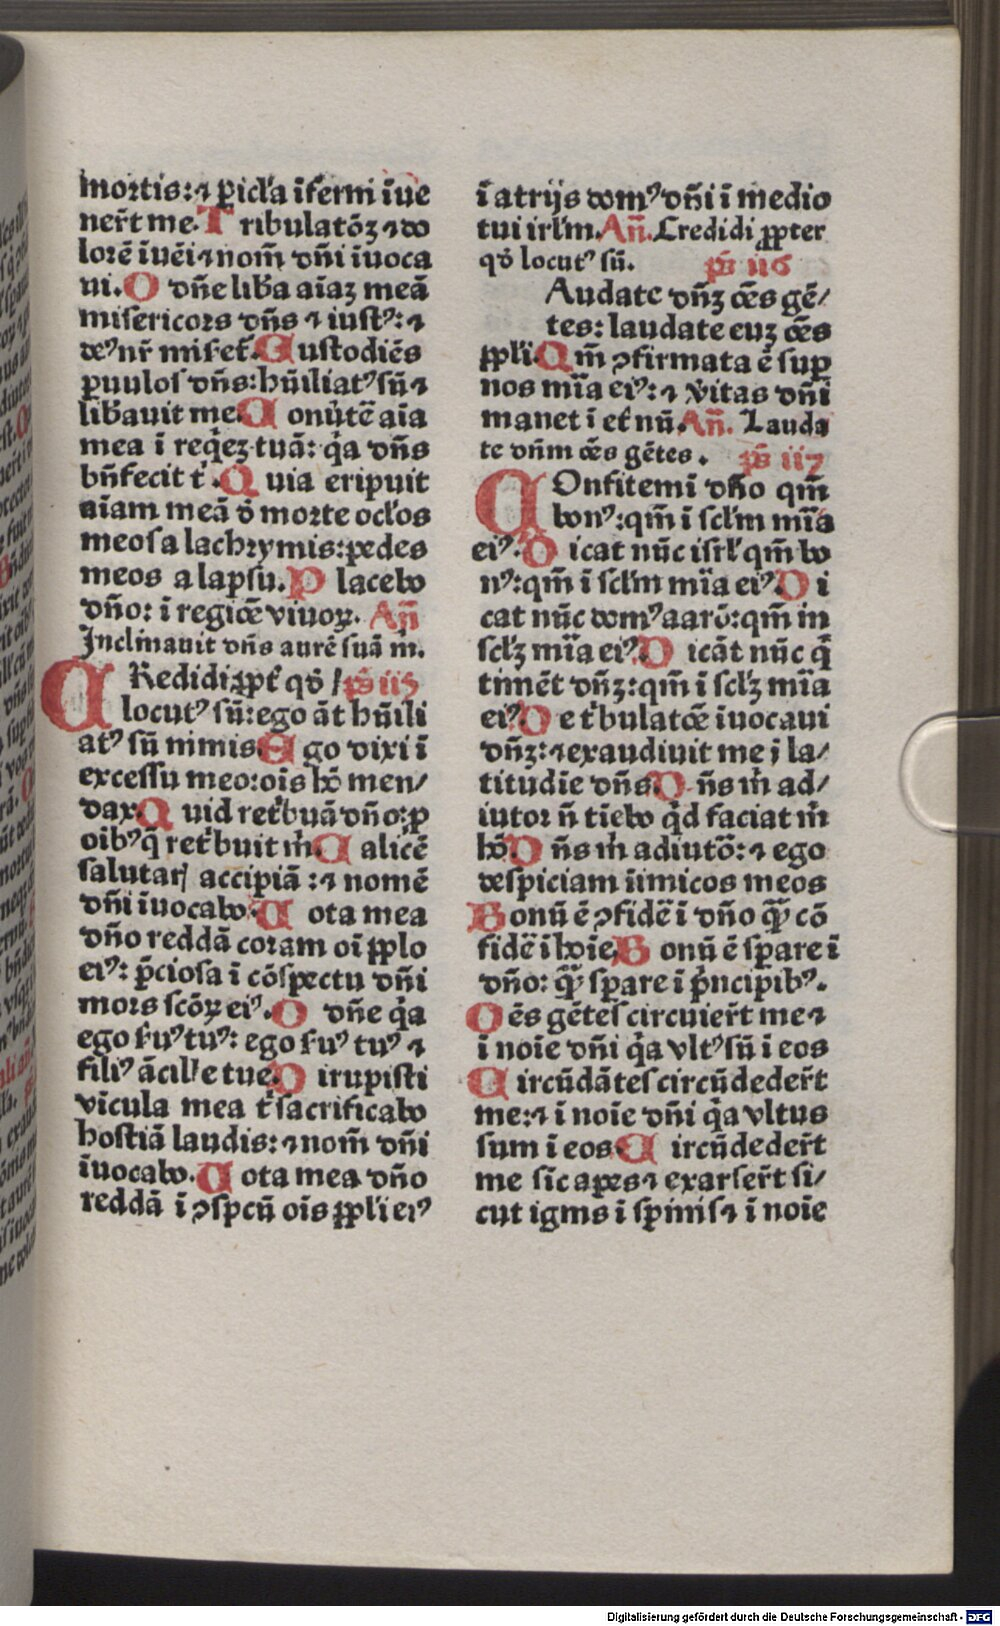 mortis:⁊ ꝑicl̉a ĩferni ĩue
ner̃t me. T ribulatõꝫ⁊ do
lorẽ ĩuẽi⁊ nom̃ dñi ĩuoca
ui. O dñe lib̉a aĩaꝫ meã
misericors dñs ⁊ iustꝰ:⁊
deꝰ nr̃ miẜet̉. C ustodiẽs
ꝑuulos dñs:hũiliatꝰ sũ⁊
lib̉auit me. C onũtẽ aĩa
mea ĩ req̉eꝫ tuã: q̉a dñs
bñfecit t̉. Q uia eripuit
aĩam meã đ morte oc̉los
meos a lachrymis:pedes
meos a lapsu. P lacebo
dño: ĩ regiõe viuoꝝ. Añ
Inclinauit dñs aurẽ suã m̉.
C Redidi ꝓpt̉ qđ / ps̃ 115
locutꝰ sũ:ego ãt hũili
atꝰ sũ nimis E go dixi ĩ
excessu meo:oĩs hõ men/
dax. Q uid ret̉buã dño:ꝓ
oĩbꝰ q̃ ret̉buit m̉. C alicẽ
salutarj accipiã :⁊ nomẽ
dñi ĩuocabo. U ota mea
dño reddã coram oĩ ꝓplo
eiꝰ: p̃ciosa ĩ cõspectu dñi
mors scõꝝ eiꝰ. O dñe q̉a
ego ẜuꝰ tuꝰ: ego ẜuꝰ tuꝰ ⁊
filiꝰ ãcille tue. D irupisti
vĩcula mea t̉ sacrificabo
hostiã laudis:⁊ nom̃ dñi
ĩuocabo. U ota mea dño
reddã ĩ ꝯspcũ oĩs ꝓpli eiꝰ
ĩ atrijs domꝰ dñi ĩ medio
tui irl̃m. Añ. Credidi ꝓpter
qđ locutꝰ sũ. ps̃ 116
Audate dñꝫ oẽs gẽ/
tes: laudate euꝫ oẽs
ꝓpli. Q m̃ ꝯfirmata ẽ suꝑ
nos mĩa eiꝰ:⁊ ṽitas dñi
manet ĩ et̉nũ. Añ. Lauda
te dñm oẽs gẽtes. ps̃ 117
C Onfitemĩ dño qm̃
bonꝰ:qm̃ ĩ scl̃m mĩa
eiꝰ. D icat nũc isrl̃ qm̃ bo
nꝰ:qm̃ ĩ scl̃m mĩa eiꝰ. D i
cat nũc domꝰ aarõ:qm̃ in
scl̃ꝫ mĩa eiꝰ. D icãt nũc q̃
timẽt dñꝫ:qm̃ ĩ scl̃ꝫ mĩa
eiꝰ. D e t̉bulatõe ĩuocaui
dñꝫ:⁊ exaudiuit me ĩ la/
titudĩe dñs. D ñs m̉ ad/
iutor ñ tĩebo q̉d faciat m̉
hõ. D ñs m̉ adiutõ:⁊ ego
despiciam ĩimicos meos
B onũ ẽ ꝯfidẽ ĩ dño q̃ꝫ cõ
fidẽ ĩ hoĩe. B onũ ẽ sꝑare ĩ
dño: q̃ꝫ sꝑare ĩ p̉ncipibꝰ.
O ẽs gẽtes circuier̃t me⁊
ĩ noĩe dñi q̉a vltꝰ sũ ĩ eos
C ircũdãtes circũdeder̃t
me:⁊ ĩ noĩe dñi q̉a vltus
sum ĩ eos. C ircũdeder̃t
me sic̃ apes⁊ exarser̃t si/
cut ignis ĩ spinis⁊ ĩ noĩe
Digitalisierung gefördert durch die Deutsche Forschungsgemeinschaft - DFG